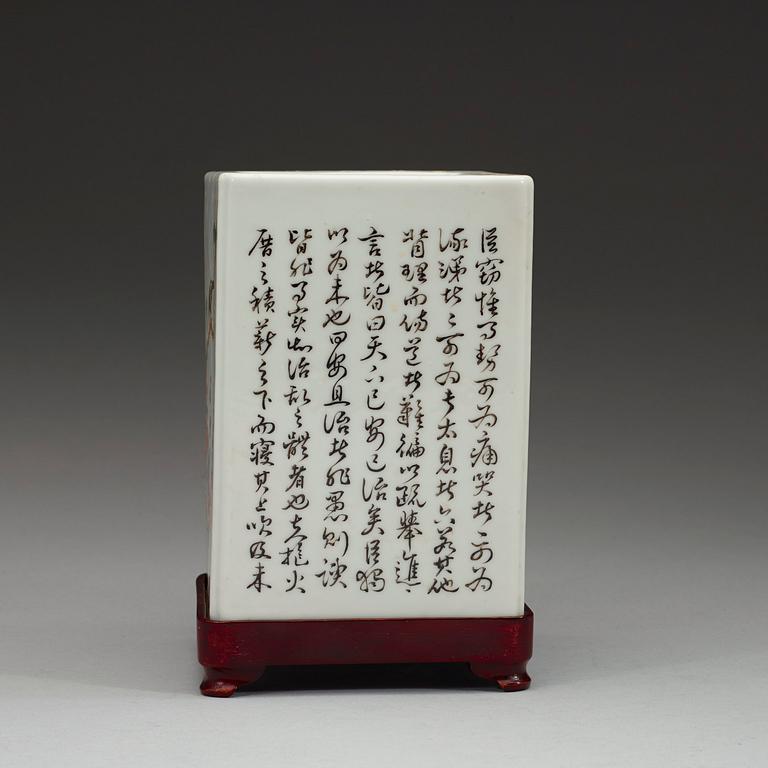 臣竊惟事勢可為痛哭者一可為
流涕者二可為長太息者六若其他
背理而傷道者難徧以疏舉進
言者皆曰天下已安已治矣臣獨
以為未也曰安且治者非愚則諛
皆非事實知治亂之體者也夫抱火
厝之積薪之下而寢其上吹及未